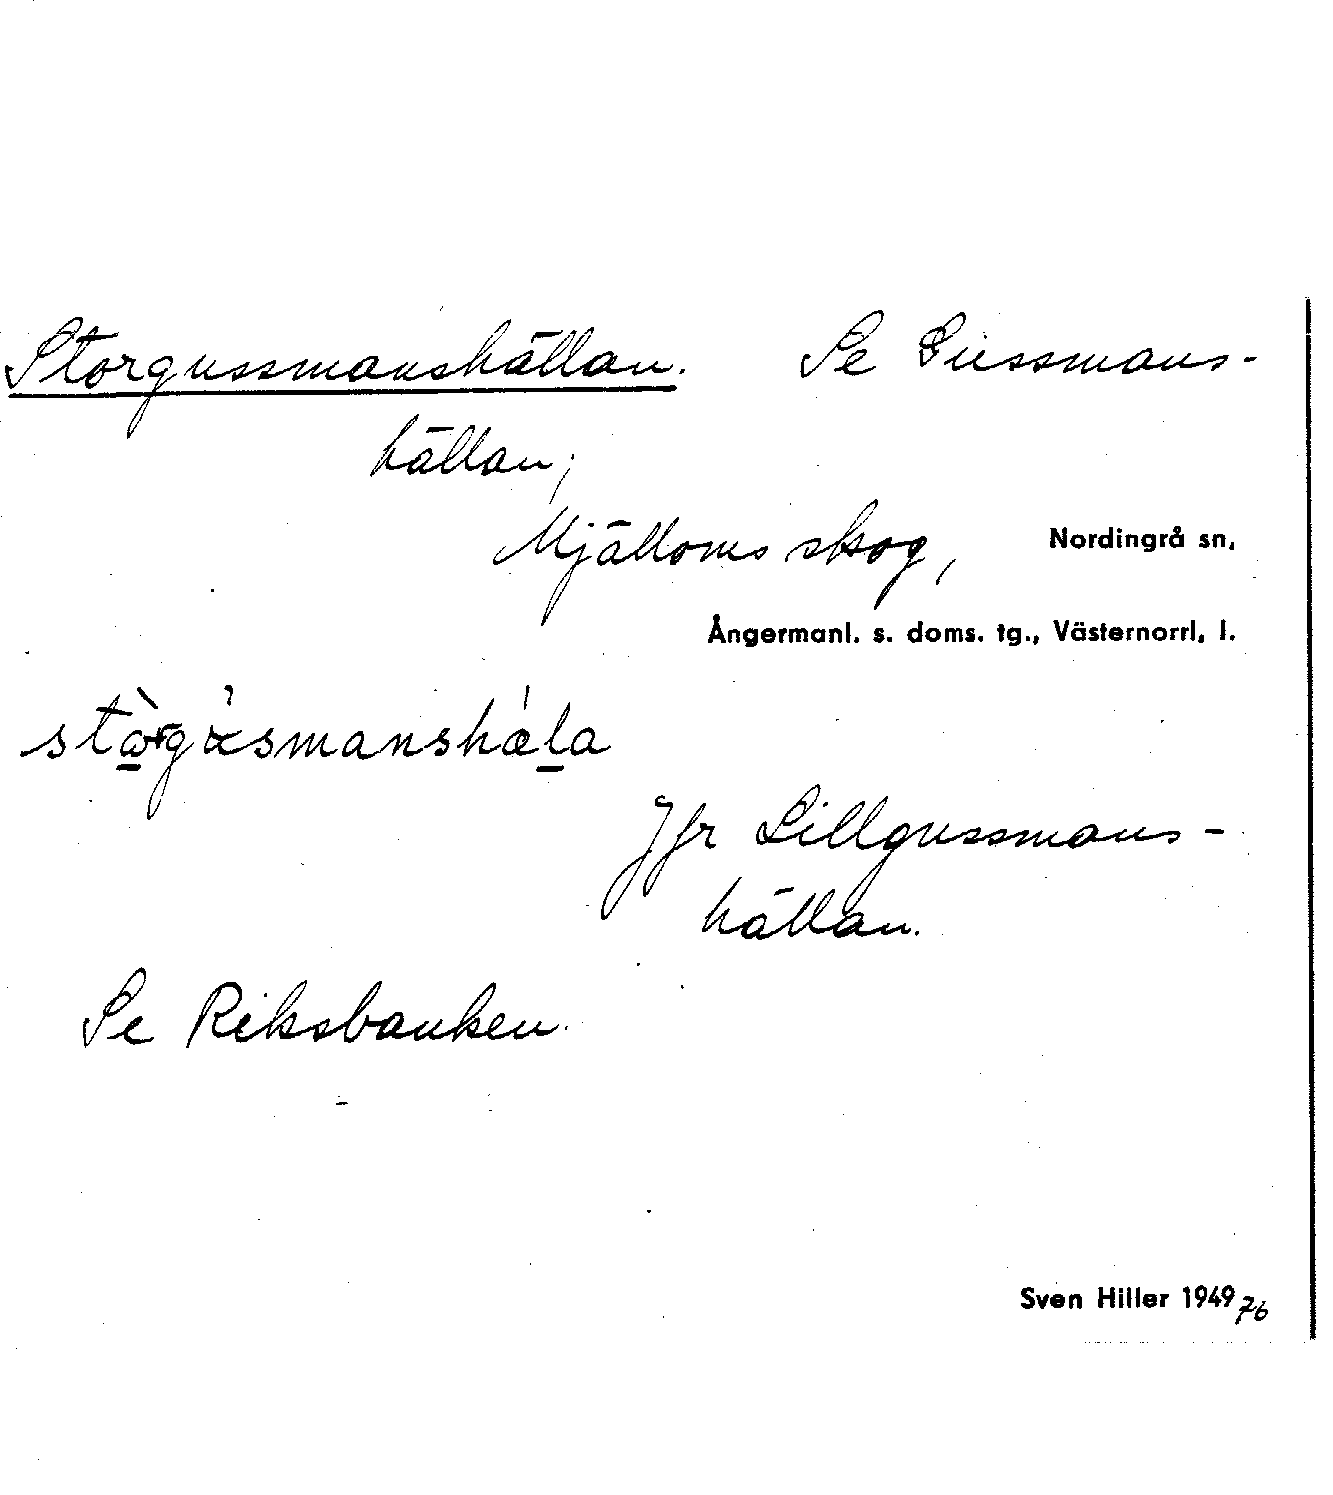 Storgussmanshällan. Se Gussmans-
hällan;
Mjälloms skog, Nordingrå sn,
Ångermanl. s. doms. tg., Västernorrl. l.
Jfr Lillgussmans-
hällan.
Se Riksbanken.
Sven Hiller 1949 76